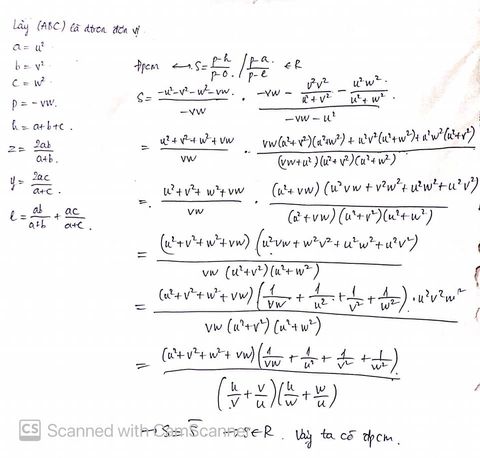 Lấy (ABC) là đtròn đơn vị
a = u²
b = v²
c = w²
p = -vw.
h = a+b+c.
z = 2ab/(a+b).
y = 2ac/(a+c).
l = ab/(a+b) + ac/(a+c).
đpcm ⟷ S = (p-h)/(p-o) / (p-a)/(p-l) ∈ R
S = (-u²-v²-w²-vw)/(-vw) · (-vw - v²u²/(u²+v²) - u²w²/(u²+w²))/(-vw-u²)
= (u²+v²+w²+vw)/(vw) · (vw(u²+v²)(u²+w²)+u²v²(u²+w²)+u²w²(u²+v²))/((vw+u²)(u²+v²)(u²+w²))
= (u²+v²+w²+vw)/(vw) · ((u²+vw)(u²vw+v²w²+u²w²+u²v²))/((u²+vw)(u²+v²)(u²+w²))
= ((u²+v²+w²+vw)(u²vw+w²v²+u²w²+u²v²))/(vw(u²+v²)(u²+w²))
= ((u²+v²+w²+vw)(1/vw + 1/u² + 1/v² + 1/w²)·u²v²w²)/(vw(u²+v²)(u²+w²))
= ((u²+v²+w²+vw)(1/vw + 1/u² + 1/v² + 1/w²))/((u/v + v/u)(u/w + w/u))
→ S = S̄ → S ∈ R. Vậy ta có đpcm.
CS Scanned with CamScanner